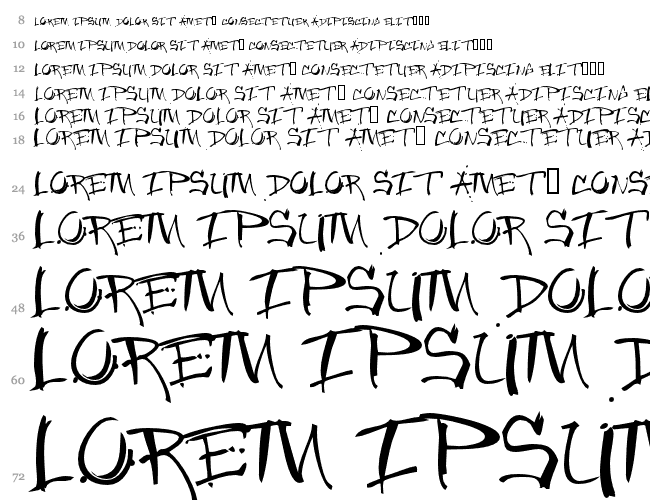 8 LOREM IPSUM DOLOR SIT AMET▯ CONSECTETUER ADIPISCING ELIT▯▯▯
10 LOREM IPSUM DOLOR SIT AMET▯ CONSECTETUER ADIPISCING ELIT▯▯▯
12 LOREM IPSUM DOLOR SIT AMET▯ CONSECTETUER ADIPISCING ELIT▯▯▯
14 LOREM IPSUM DOLOR SIT AMET▯ CONSECTETUER ADIPISCING EL
16 LOREM IPSUM DOLOR SIT AMET▯ CONSECTETUER ADIPISC
18 LOREM IPSUM DOLOR SIT AMET▯ CONSECTETUER AD
24 LOREM IPSUM DOLOR SIT AMET▯ CONS
36 LOREM IPSUM DOLOR SIT
48 LOREM IPSUM DOLO
60 LOREM IPSUM D
72 LOREM IPSUM